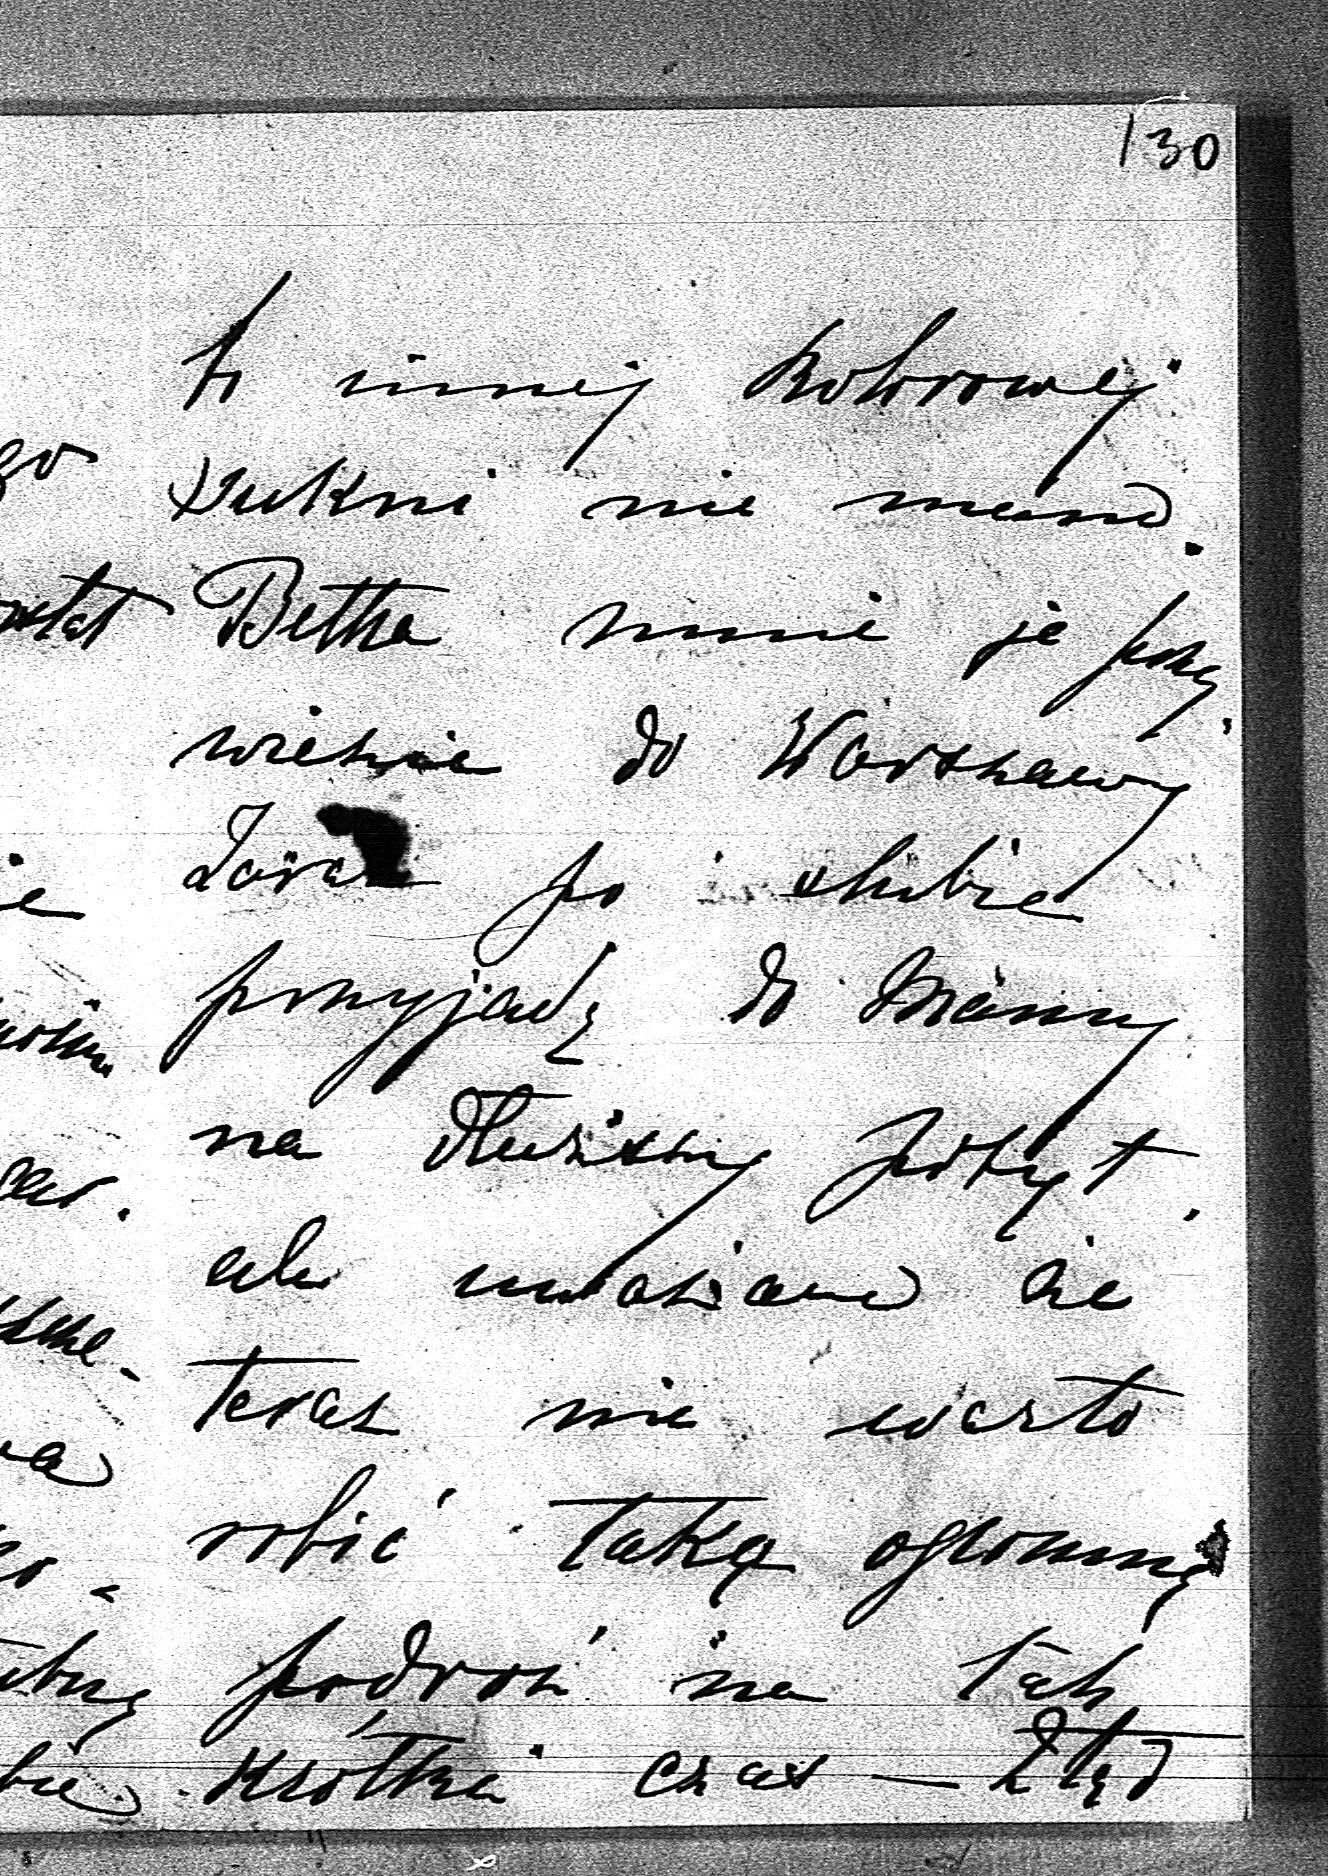 130
bo innej kolorowej
sukni nie mam.
Betka mnie je przy
wiezie do Warszawy,
Zaraz po slubie
przyjadę do Mamy
na dłuższy pobyt,
ale uważam że
teraz nie warto
robić taką ogromną
podroż na tak
krótki czas — Ztąd